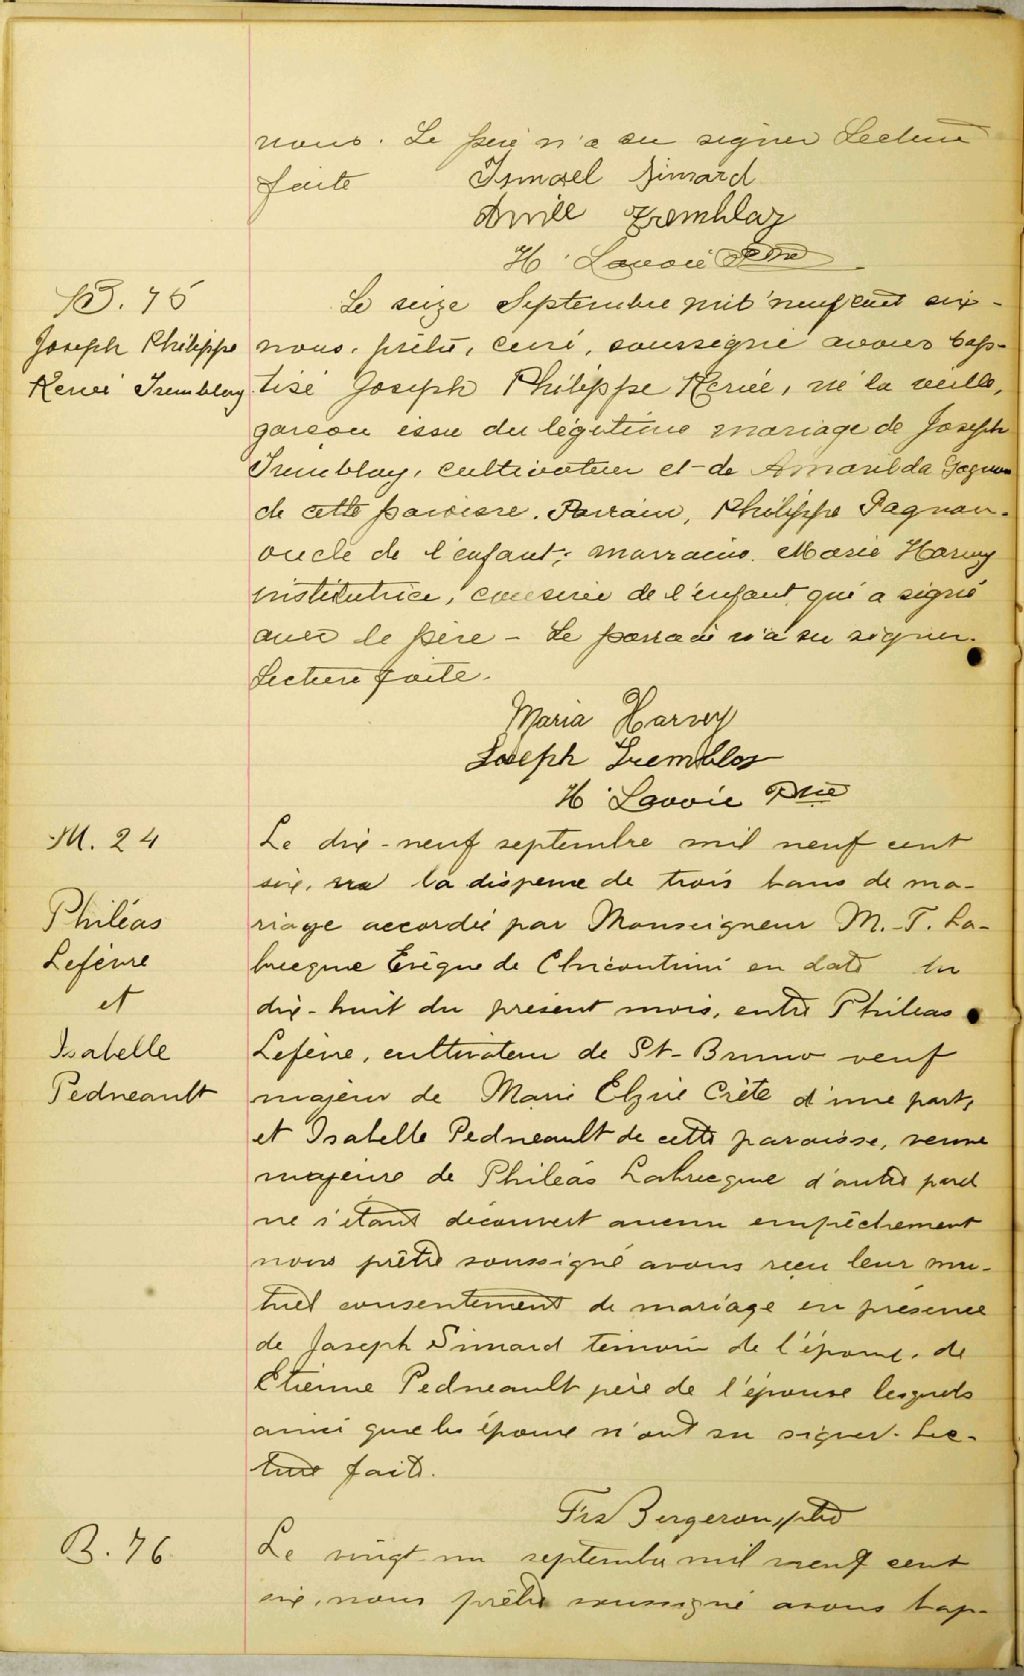 nous. Le père n'a su signer Lecture
faite
Ismael Simard
Tremblay
H. Lavoie Ptre
B. 75
Joseph Philippe
Renée Tremblay
Le seize Septembre mil neuf cent six -
nous, prêtre, curé, soussigné avons bap-
tisé Joseph Philippe Renée, né la veille,
garçon issu du légitime mariage de Joseph
Tremblay, cultivateur et de Amarilda Gagnon
de cette paroisse. Parrain, Philippe Gagnon.
oncle de l'enfant; marraine. Marie Harvey
institutrice, cousine de l'enfant qui a signé
avec le père - Le parrain n'a su signer.
Lecture faite.
Maria Harvey
Joseph Tremblay
H. Lavoie Ptre
M. 24
Philéas
Lefèvre
et
Isabelle
Pedneault
Le dix-neuf septembre mil neuf cent
six, vu la dispense de trois bans de ma-
riage accordée par Monseigneur M.-T. La-
brecque Evêque de Chicoutimi en date du
dix-huit du présent mois, entre Philéas
Lefèvre, cultivateur de St-Bruno veuf
majeur de Marie Elzire Crète d'une part,
et Isabelle Pedneault de cette paroisse, veuve
majeure de Philéas Labrecque d'autre part
ne s'étant découvert aucun empêchement
nous prêtre soussigné avons reçu leur mu-
tuel consentement de mariage en présence
de Joseph Simard temoin de l'époux, de
Etienne Pedneault père de l'épouse lesquels
ainsi que les époux n'ont su signer. Lec-
ture faite.
Frs Bergeron, ptre
B. 76
Le vingt-un septembre mil neuf cent
six, nous prêtre soussigné avons bap-